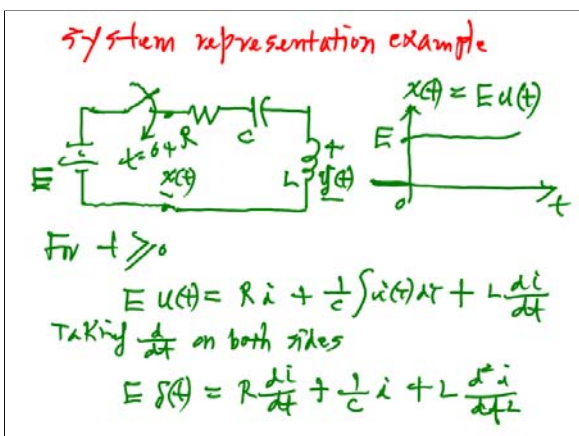 system representation example
x(t) = E u(t)
E
t=0
+
R
C
x(t)
-
L
+
y(t)
-
E
0
t
For t ≥ 0
E u(t) = R i + 1/C ∫ i(τ) dτ + L di/dt
Taking d/dt on both sides
E δ(t) = R di/dt + 1/C i + L d² i/dt²